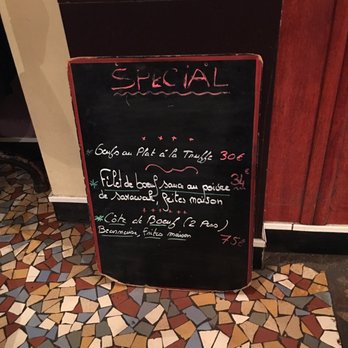 SPECIAL
Oeufs au Plat à la Truffe 30€
Filet de boeuf sauce au poivre
de sarawak, frites maison
Côte de Boeuf (2 Pers)
Bearnaise, frites maison 75€